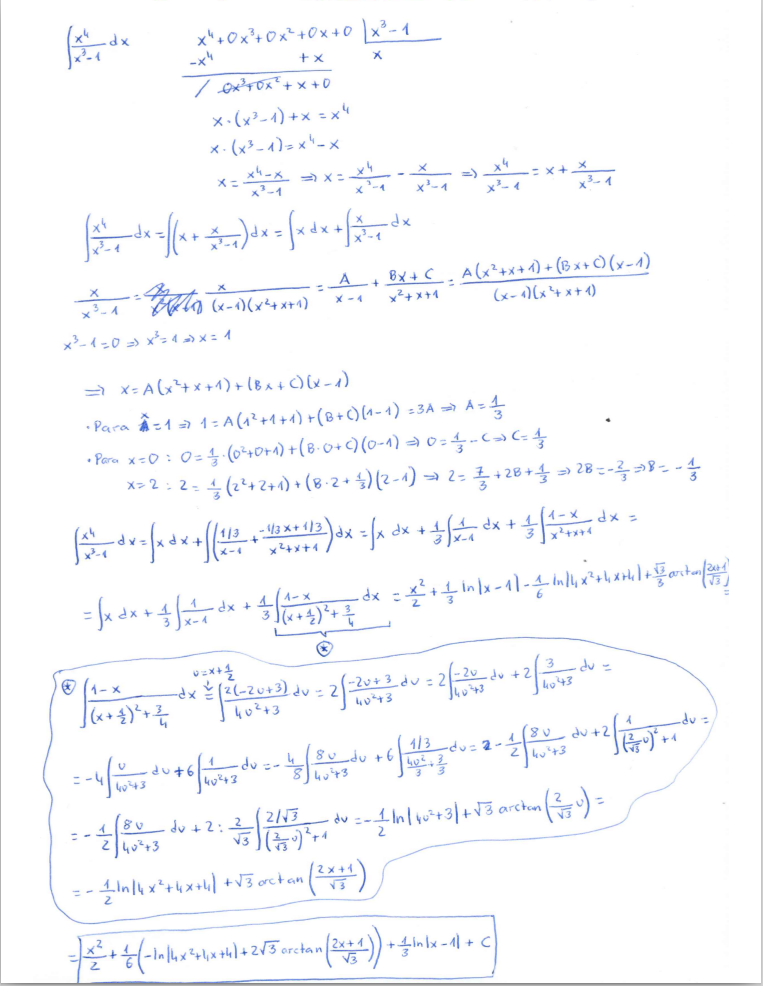 ∫ x⁴/(x³-1) dx    x⁴+0x³+0x²+0x+0 | x³-1
-x⁴ +x    x
/ 0x³+0x²+x+0
x·(x³-1)+x = x⁴
x·(x³-1) = x⁴-x
x = (x⁴-x)/(x³-1) ⇒ x = x⁴/(x³-1) - x/(x³-1) ⇒ x⁴/(x³-1) = x + x/(x³-1)
∫ x⁴/(x³-1) dx = ∫(x + x/(x³-1)) dx = ∫x dx + ∫ x/(x³-1) dx
x/(x³-1) = x/((x-1)(x²+x+1)) = A/(x-1) + (Bx+C)/(x²+x+1) = (A(x²+x+1)+(Bx+C)(x-1))/((x-1)(x²+x+1))
x³-1=0 ⇒ x³=1 ⇒ x=1
⇒ x = A(x²+x+1)+(Bx+C)(x-1)
· Para x=1 ⇒ 1=A(1²+1+1)+(B+C)(1-1) = 3A ⇒ A = 1/3
· Para x=0 : 0 = 1/3·(0²+0+1)+(B·0+C)(0-1) ⇒ 0 = 1/3 - C ⇒ C = 1/3
x=2 : 2 = 1/3(2²+2+1)+(B·2+1/3)(2-1) ⇒ 2 = 7/3 + 2B + 1/3 ⇒ 2B = -2/3 ⇒ B = -1/3
∫ x⁴/(x³-1) dx = ∫x dx + ∫((1/3)/(x-1) + (-1/3x+1/3)/(x²+x+1)) dx = ∫x dx + 1/3 ∫ 1/(x-1) dx + 1/3 ∫ (1-x)/(x²+x+1) dx =
= ∫x dx + 1/3 ∫ 1/(x-1) dx + 1/3 ∫ (1-x)/((x+1/2)²+3/4) dx = x²/2 + 1/3 ln|x-1| - 1/6 ln|4x²+4x+4| + √3/3 arctan(2x+1/√3) =
⊛
u=x+1/2
⊛ ∫ (1-x)/((x+1/2)²+3/4) dx = ∫ 2(-2u+3)/(4u²+3) du = 2∫ (-2u+3)/(4u²+3) du = 2∫ -2u/(4u²+3) du + 2∫ 3/(4u²+3) du =
= -4∫ u/(4u²+3) du + 6∫ 1/(4u²+3) du = -4/8 ∫ 8u/(4u²+3) du + 6∫ (1/3)/(4u²/3+3/3) du = -1/2 ∫ 8u/(4u²+3) du + 2∫ 1/((2/√3 u)²+1) du =
= -1/2 ∫ 8u/(4u²+3) du + 2 : 2/√3 ∫ (2/√3)/((2/√3 u)²+1) du = -1/2 ln|4u²+3| + √3 arctan(2/√3 u) =
= -1/2 ln|4x²+4x+4| + √3 arctan(2x+1/√3)
= x²/2 + 1/6(-ln|4x²+4x+4| + 2√3 arctan(2x+1/√3)) + 1/3 ln|x-1| + C